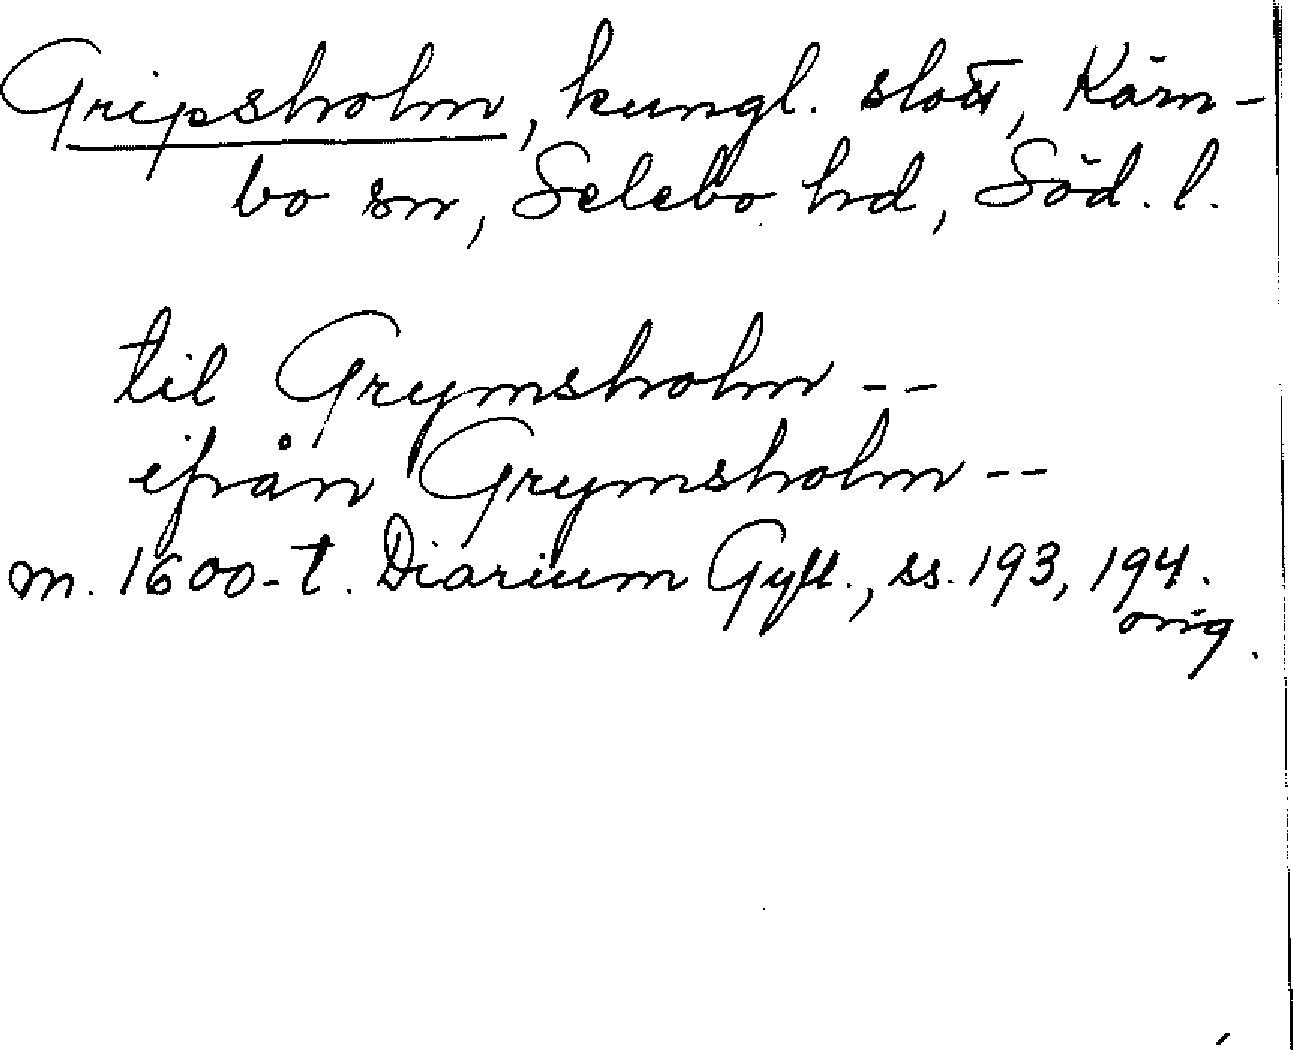 Gripsholm, kungl. slott, Kärn-
bo sn, Selebo hd, Söd. l.
til Grymsholm --
ifrån Grymsholm --
m. 1600-t. Diarium Gyll., ss. 193, 194.
orig.